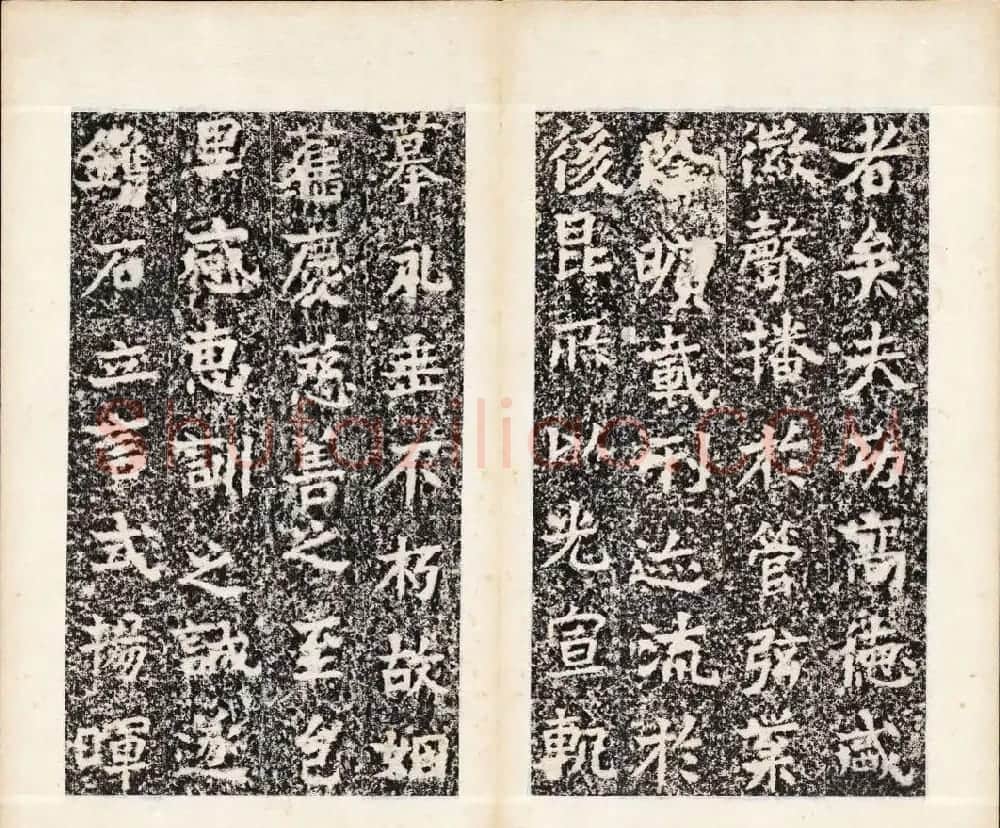 者矣夫功高德盛
徽聲播於管弦業
載刑迹流於
後昆所以光宣軌
摹永垂不朽故姻
舊慶慈善之至邑
里感惠訓之誠遂
鐫石立言式揚暉
Shufaziliao.COM